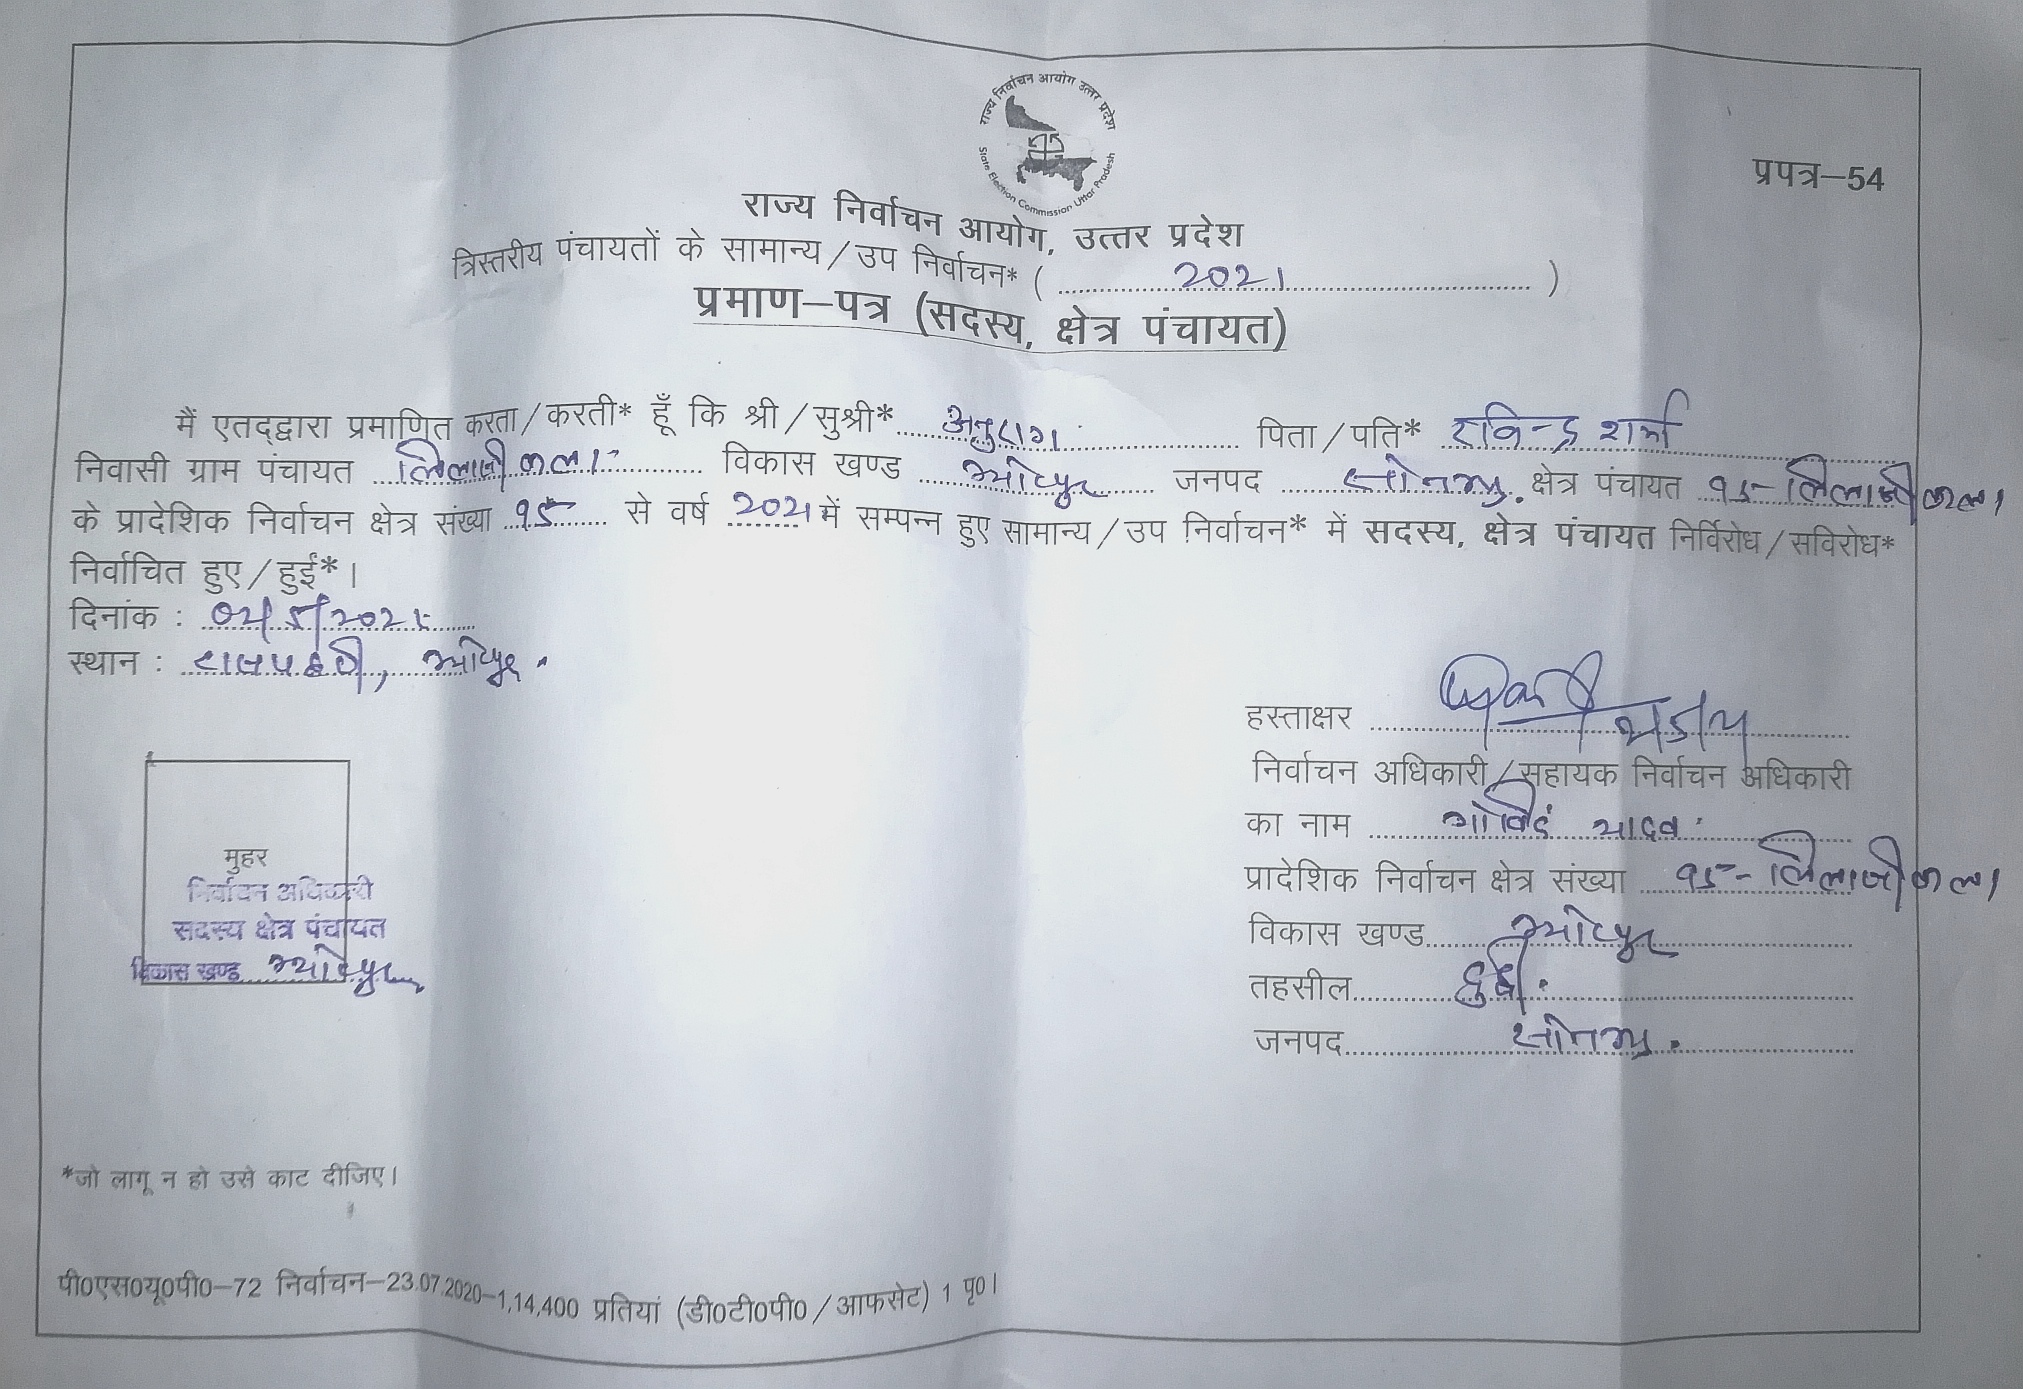 राज्य निर्वाचन आयोग उत्तर प्रदेश
State Election Commission Uttar Pradesh
प्रपत्र–54
राज्य निर्वाचन आयोग, उत्तर प्रदेश
त्रिस्तरीय पंचायतों के सामान्य/उप निर्वाचन* (2021)
प्रमाण–पत्र (सदस्य, क्षेत्र पंचायत)
मैं एतद्द्वारा प्रमाणित करता/करती* हूँ कि श्री/सुश्री* अनुराग पिता/पति* रविन्द्र शर्मा
निवासी ग्राम पंचायत लिलासी कला विकास खण्ड म्योरपुर जनपद सोनभद्र. क्षेत्र पंचायत १५–लिलासी कला
के प्रादेशिक निर्वाचन क्षेत्र संख्या १५ से वर्ष 2021 में सम्पन्न हुए सामान्य/उप निर्वाचन* में सदस्य, क्षेत्र पंचायत निर्विरोध/सविरोध*
निर्वाचित हुए/हुई*।
दिनांक : 02/5/2021
स्थान : म्योरपुर
हस्ताक्षर
निर्वाचन अधिकारी/सहायक निर्वाचन अधिकारी
का नाम गोविंद यादव
प्रादेशिक निर्वाचन क्षेत्र संख्या १५–लिलासी कला
विकास खण्ड म्योरपुर
तहसील दुद्धी.
जनपद सोनभद्र.
मुहर
निर्वाचन अधिकारी
सदस्य क्षेत्र पंचायत
विकास खण्ड म्योरपुर
*जो लागू न हो उसे काट दीजिए।
पी0एस0यू0पी0–72 निर्वाचन–23.07.2020–1,14,400 प्रतियां (डी0टी0पी0/आफसेट) 1 पृ0।